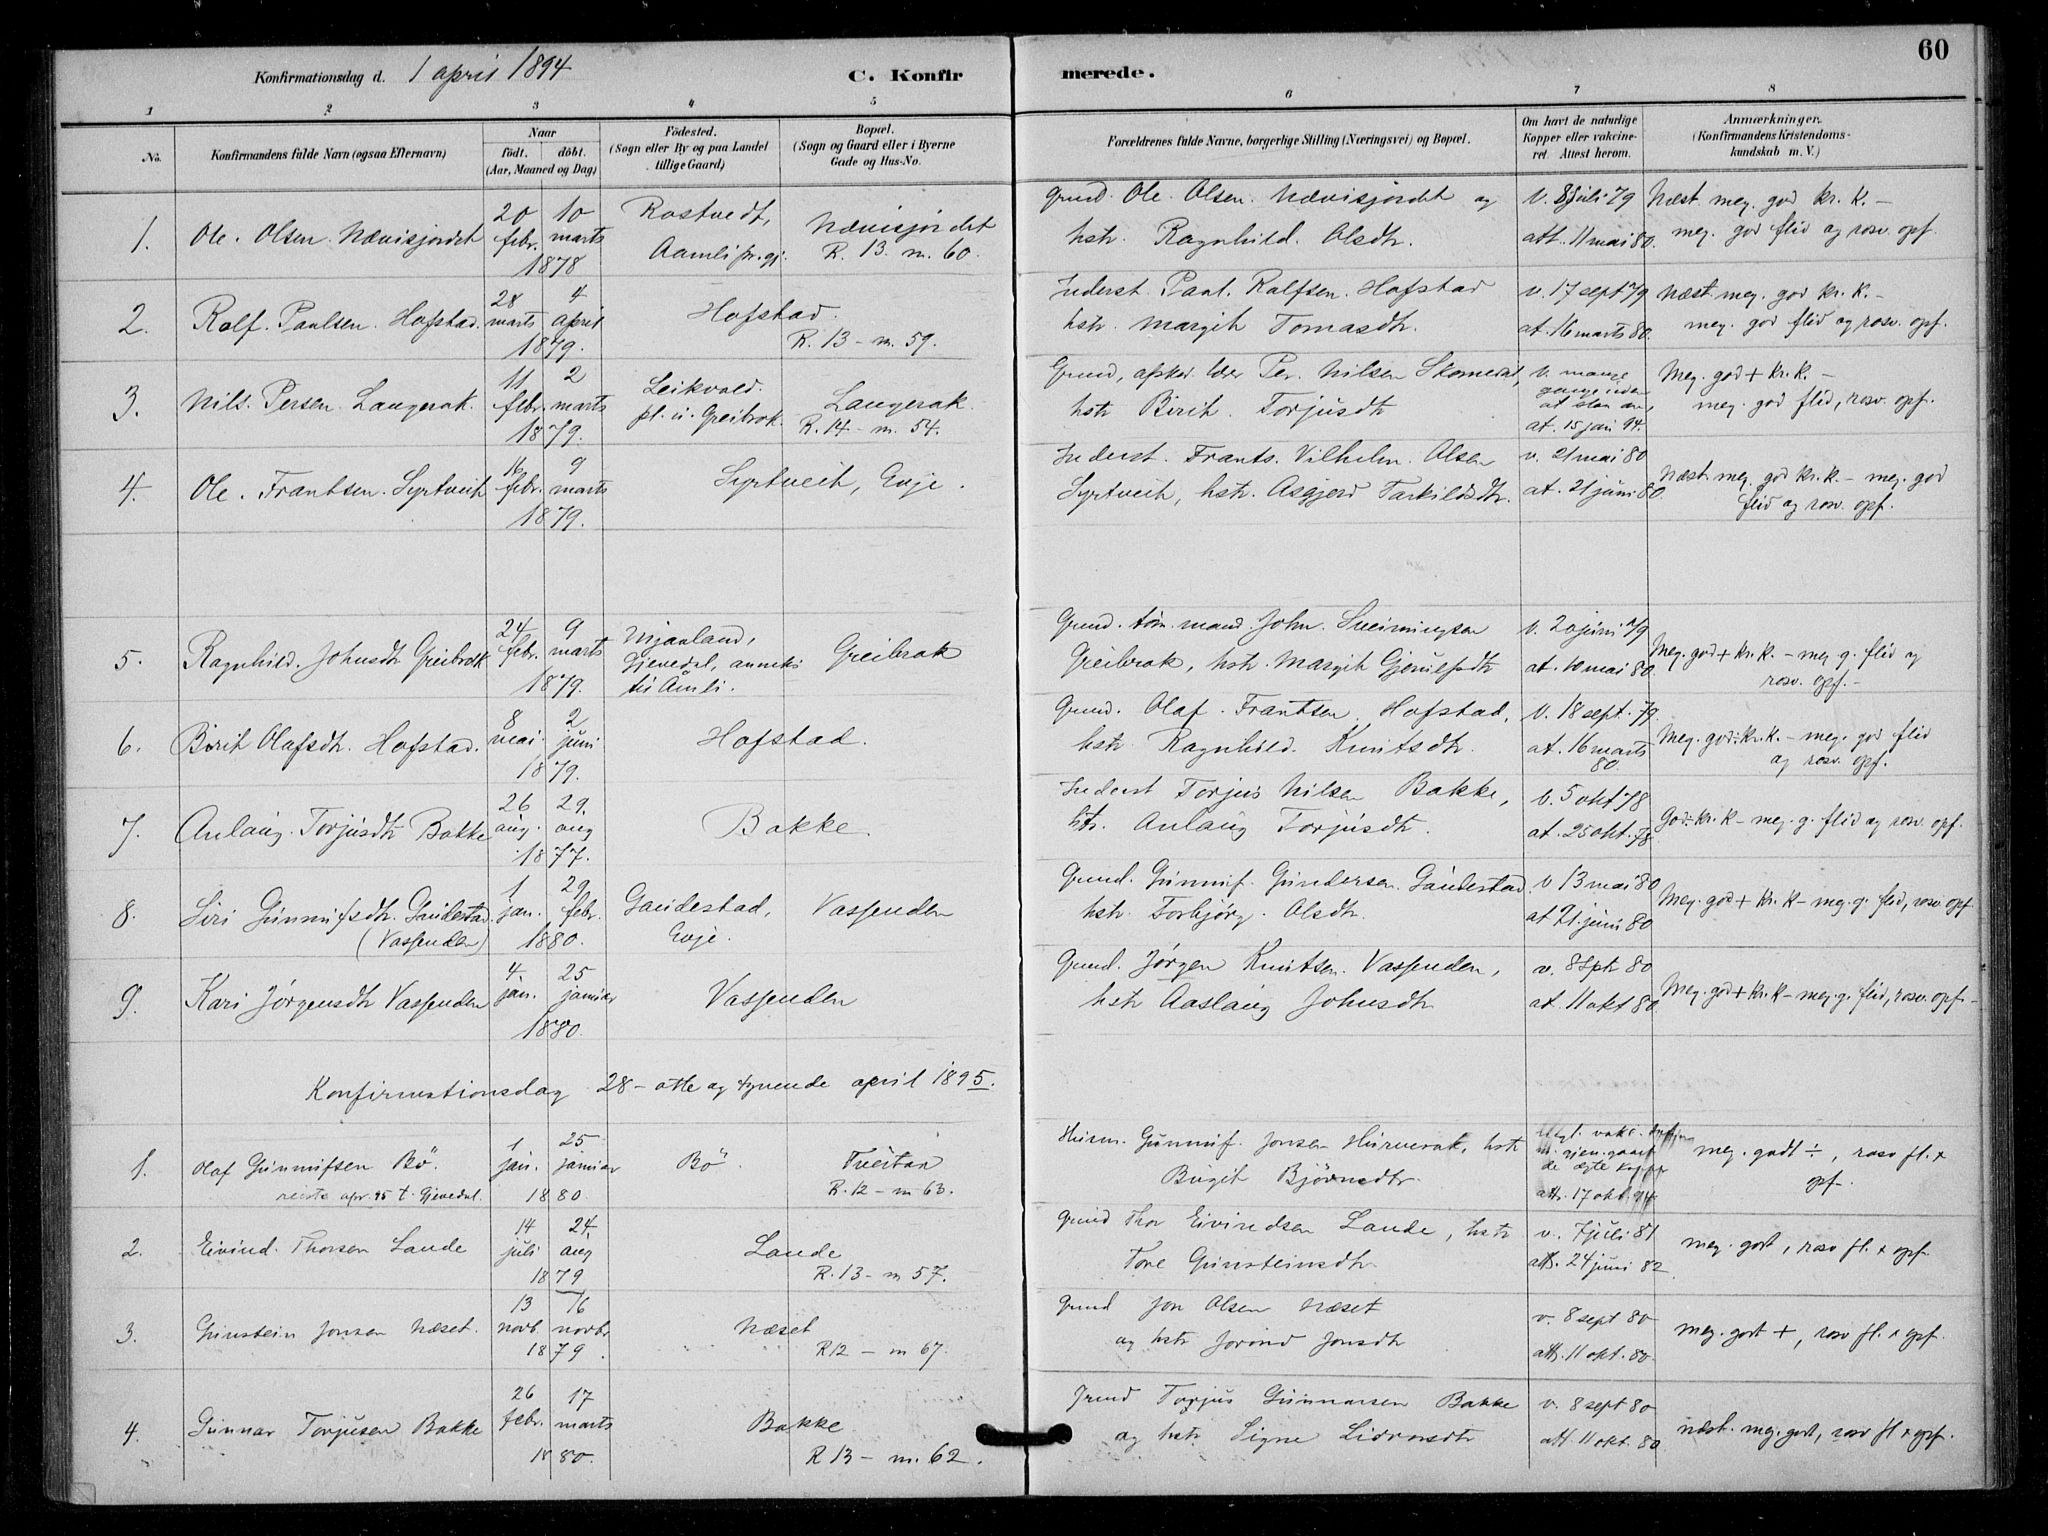 60
Konfirmationsdag d. 1 april 1894
C. Konfir
merede.
1 2 3 4 5 6 7 8
No.
Konfirmandens fulde Navn (ogsaa Efternavn)
Naar
födt. döbt.
(Aar, Maaned og Dag)
Födested.
(Sogn eller By og paa Landet
tillige Gaard)
Bopæl.
(Sogn og Gaard eller i Byerne
Gade og Hus-No.
Forældrenes fulde Navne, borgerlige Stilling (Næringsvei) og Bopæl.
Om havt de naturlige
Kopper eller vakcine-
ret. Attest herom.
Anmærkninger.
(Konfirmandens Kristendoms-
kundskab m. V.)
1. Ole. Olsen. Nævisjordet
20 10
febr. marts
1878
Rostvedt,
Aamli pr.gj.
Nævisjordet
R. 13. m. 60.
Grund. Ole. Olsen. Nævisjordet og
hstr. Ragnhild. Olsdtr.
v. 8 juli 79
att. 11 mai 80.
Næst meg. god kr. K. –
meg. god flid og rosv. opf.
2. Rolf. Paulsen. Hofstad.
28 4
marts april
1879.
Hofstad.
R. 13 – m. 59.
Inderst. Paul. Rolfsen. Hofstad
hstr. Margit Tomasdtr.
v. 17 sept 79
at. 16 marts 80.
Næst meg. god kr. K. –
meg. god flid og rosv. opf.
3. Nils. Persen. Langerak.
11 2
febr. marts
1879.
Leikvold.
pl. u. Greibrok.
Langerak.
R. 14 – m. 54.
Grund, Per. Nilsen Skomedal,
hstr Birit. Torjusdtr
v. mange
gange uden
at slaa an,
at. 15 jan 94.
Meg. god + kr. K. –
meg. god flid, rosv. opf.
4. Ole. Frantsen. Syrtveit
16 9
febr. marts
1879.
Syrtveit, Evje.
Inderst. Frants. Vilhelm. Olsen
Syrtveit, hstr. Asgjerd Tarkildsdtr.
v. 21 mai 80
at. 21 juni 80.
Næst meg. god kr. K. – meg. god
flid og rosv. opf.
5. Ragnhild. Johnsdtr Greibrok
24 9
febr. marts
1879.
Mjaaland,
Gjevedal, anneks
til Åmli.
Greibrok
Grund. tøm.mand. John. Sveinungsen
Greibrok, hstr. Margit Gjerulfsdtr
v. 20 juni 79
at. 10 mai 80.
Meg. god + kr. K. – meg g. flid og
rosv. opf. –
6. Birit Olafsdtr. Hofstad.
8 2
mai. juni
1879.
Hofstad.
Grund. Olaf. Frantsen. Hofstad,
hstr. Ragnhild. Knutsdtr.
v. 18 sept. 79.
at. 16 marts
80.
Meg. god ÷ kr. K. – meg. god flid
og rosv. opf.
7. Anlaug. Torjusdtr Bakke
26 29
aug. aug
1877.
Bakke.
Inderst Torjus Nilsen Bakke,
htr. Anlaug Torjusdtr.
v. 5 okt 78
at. 25 okt. 78
God ÷ kr. K – meg. g. flid og rosv. opf.
8. Siri Gunnufsdtr. Gaudestad
(Vassenden)
1 29
jan. febr.
1880.
Gaudestad,
Evje.
Vassenden
Grund. Gunnuf. Gundersen. Gaudestad
hstr. Torbjörg. Olsdtr.
v 13 mai 80
at 21 juni 80
Meg. god + kr. K – meg. g. flid, rosv. opf
9. Kari Jørgensdtr Vassenden
4 25
jan. januar
1880.
Vassenden
Grund. Jørgen Knutsen. Vassenden,
hstr Aaslaug Johnsdtr
v. 8 Spt 80
at. 11 okt 80
Meg. god + kr. K – meg. g. flid, rosv. opf. –
Konfirmationsdag 28 – otte og tyvende april 1895.
1. Olaf Gunnufsen Bö.
reiste apr. 95 t. Gjevedal.
1 25
jan. januar
1880.
Bö.
Tveitan
R. 12 – m 63.
Husm. Gunnuf. Jonsen Hurverak, hstr
Birgit Bjørnsdtr.
vakc.
de ægte kopper
att. 17 okt. 94.
meg. godt ÷, rosv fl. +
opf.
2. Eivind. Thorsen Lande
14 24
juli aug
1879
Lande
R. 13 – m 57.
Grund Thor Eivindsen Lande, hstr
Tore Gunsteinsdtr
v. 7 juli 81
att. 24 juni 82
meg. godt, rosv fl. + opf.
3. Gunstein Jonsen Næset.
13 16
novb. novbr
1879.
Næset
R 12 – m 67.
Grund Jon Olsen Næset
og hstr Jorund Jonsdtr
v. 8 sept 80
att. 11 okt. 80.
meg. godt +, rosv fl. + opf.
4. Gunnar Torjusen Bakke
26 17
febr. marts
1880.
Bakke
R 13 – m. 62.
Grund Torjus Gunnarsen Bakke
og hstr Signe Lidvorsdtr
v. 8 sept 80
att. 11 okt. 80
næst. meg. godt, rosv fl + opf.